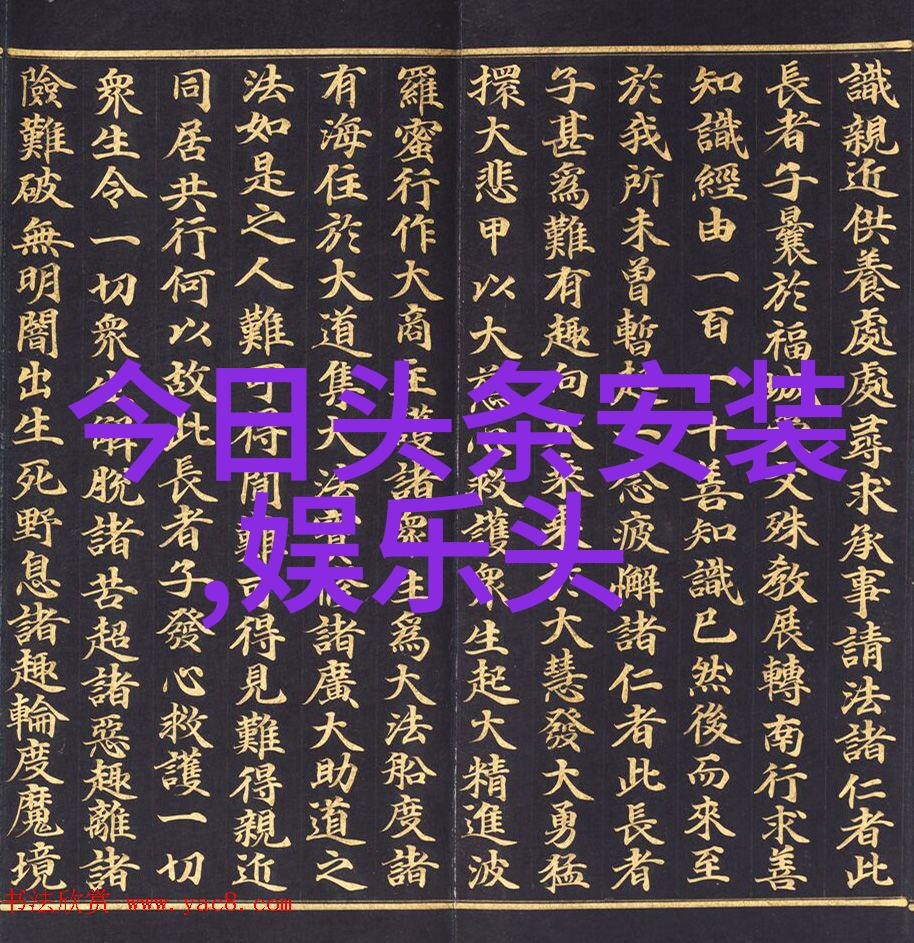 識親近供養處處尋求承事請法諸仁者此
長者子曩於福城受文殊教展轉南行求善
知識經由一百一十善知識已然後而來至
於我所未曾暫起一念疲懈諸仁者此長者
子甚爲難有趣向大乘乘於大慧發大勇猛
擐大悲甲以大慈心救護衆生起大精進波
羅蜜行作大商主護諸衆生爲大法船度諸
有海住於大道集大法寶修諸廣大助道之
法如是之人難可得聞難可得見難得親近
同居共行何以故此長者子發心救護一切
衆生令一切衆生解脫諸苦超諸惡趣離諸
險難破無明闇出生死野息諸趣輪度魔境
今日头条安装
,娱乐头
书法欣赏 www.yac8.com